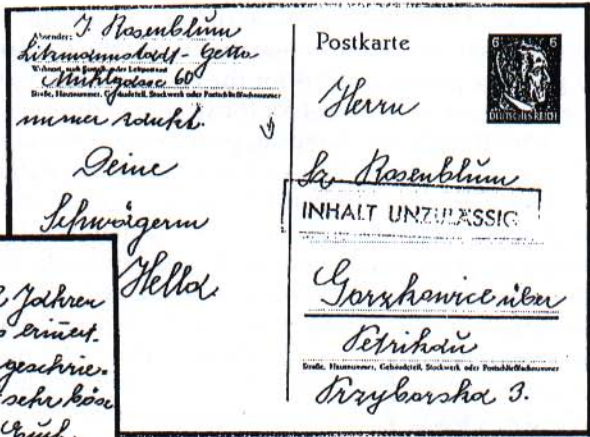 Absender: J. Rosenblum
Litzmannstadt-Getto
Wohnort, auch Zustell- oder Leitpostamt
Mühlgasse 60
Straße, Hausnummer, Gebäudeteil, Stockwerk oder Postschließfachnummer
immer
Deine
Schwägerin
Hella
Postkarte
6 6
DEUTSCHES REICH
Herrn
Sz. Rosenblum
INHALT UNZULÄSSIG
Gorzkowice über
Petrikau
Straße, Hausnummer, Gebäudeteil, Stockwerk oder Postschließfachnummer
Przyborska 3.
Jahren
geschrie-
sehr böse
Euch.